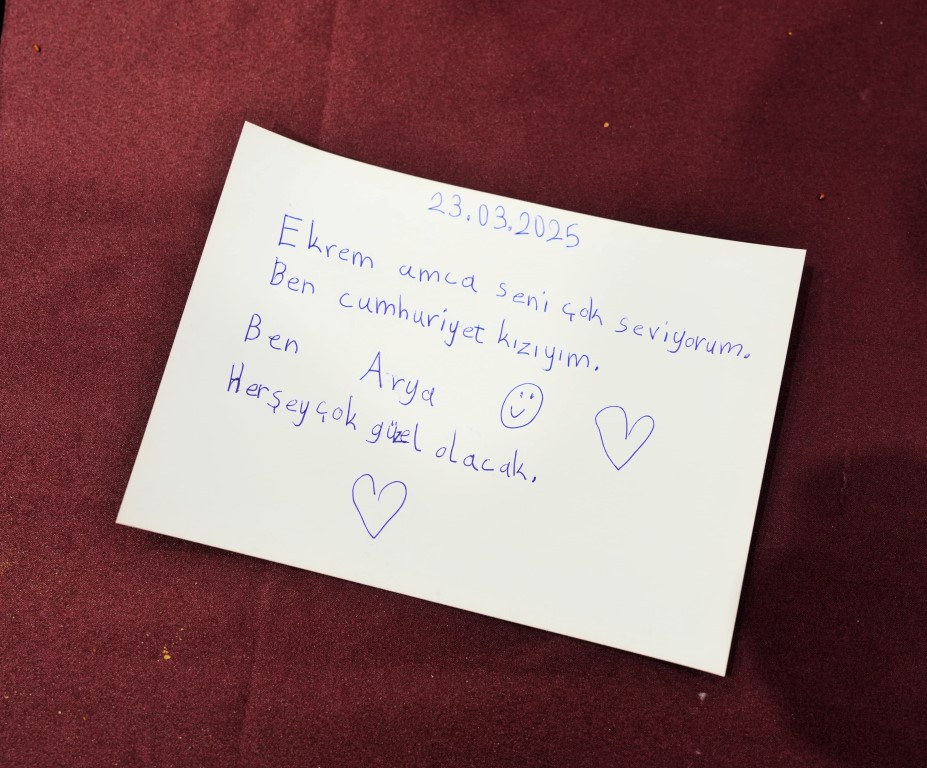 23.03.2025
Ekrem amca seni çok seviyorum.
Ben cumhuriyet kızıyım.
Ben Arya
Herşey çok güzel olacak.